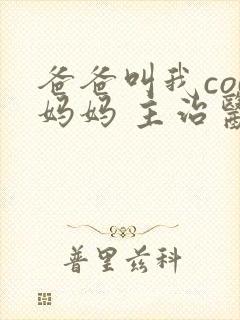 爸爸叫我co
妈妈 主治醫
普里兹科